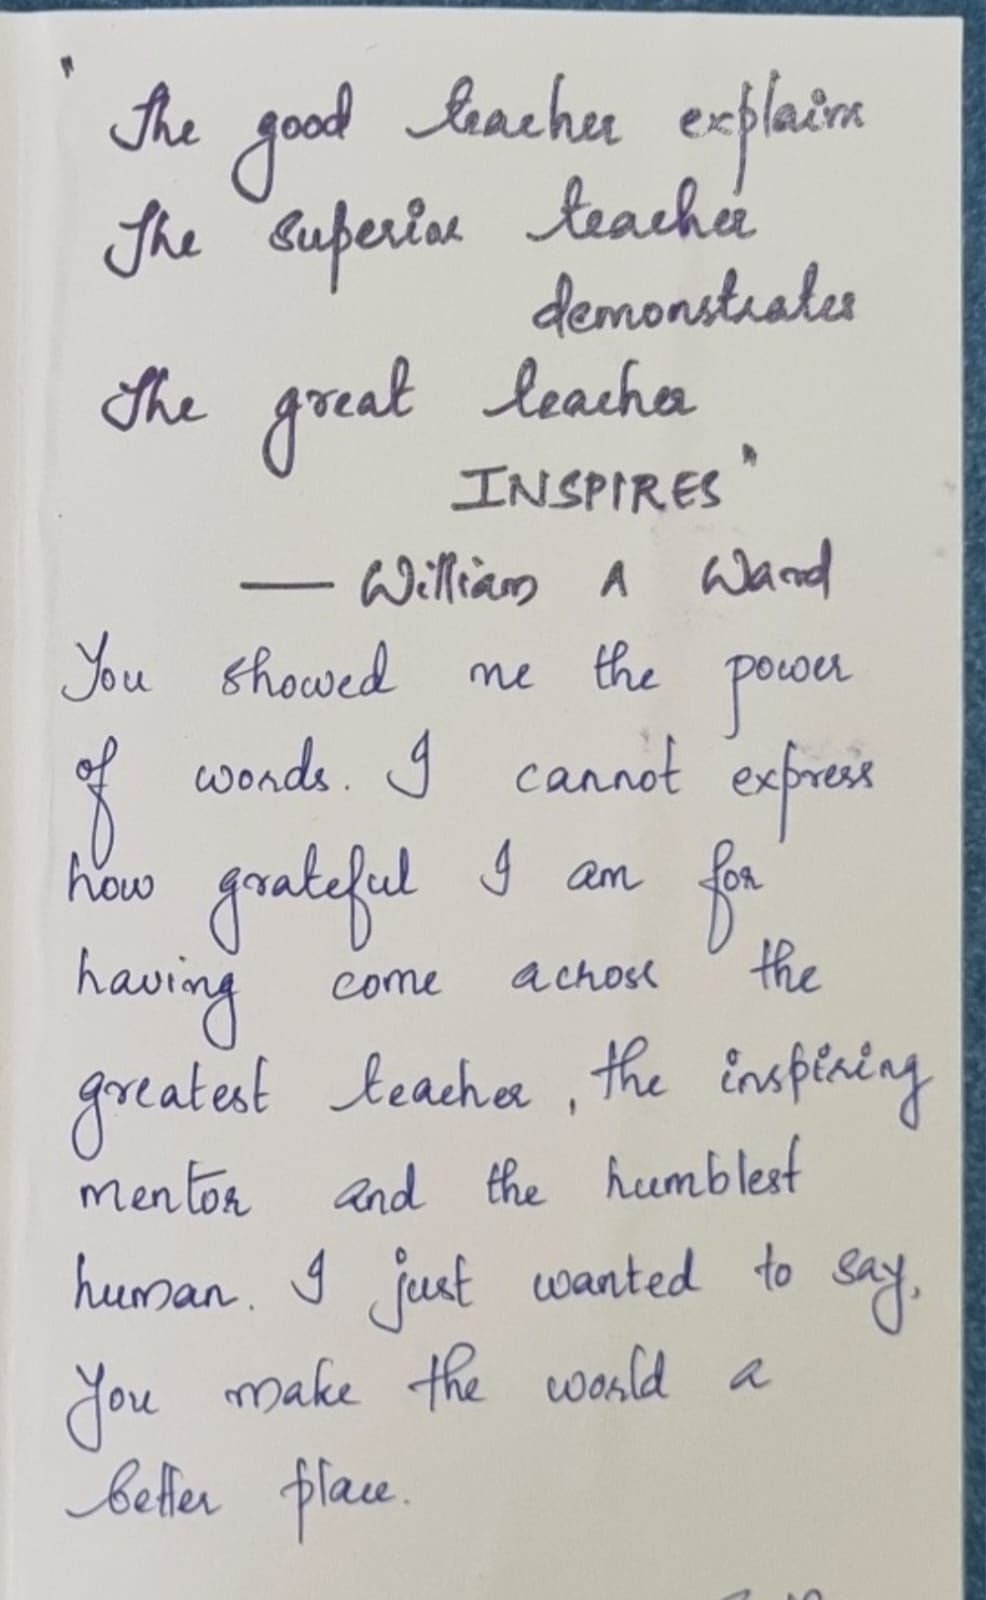 "The good teacher explains
The superior teacher
demonstrates
The great teacher
INSPIRES"
— William A Ward
You showed me the power
of words. I cannot express
how grateful I am for
having come across the
greatest teacher, the inspiring
mentor and the humblest
human. I just wanted to say,
You make the world a
better place.